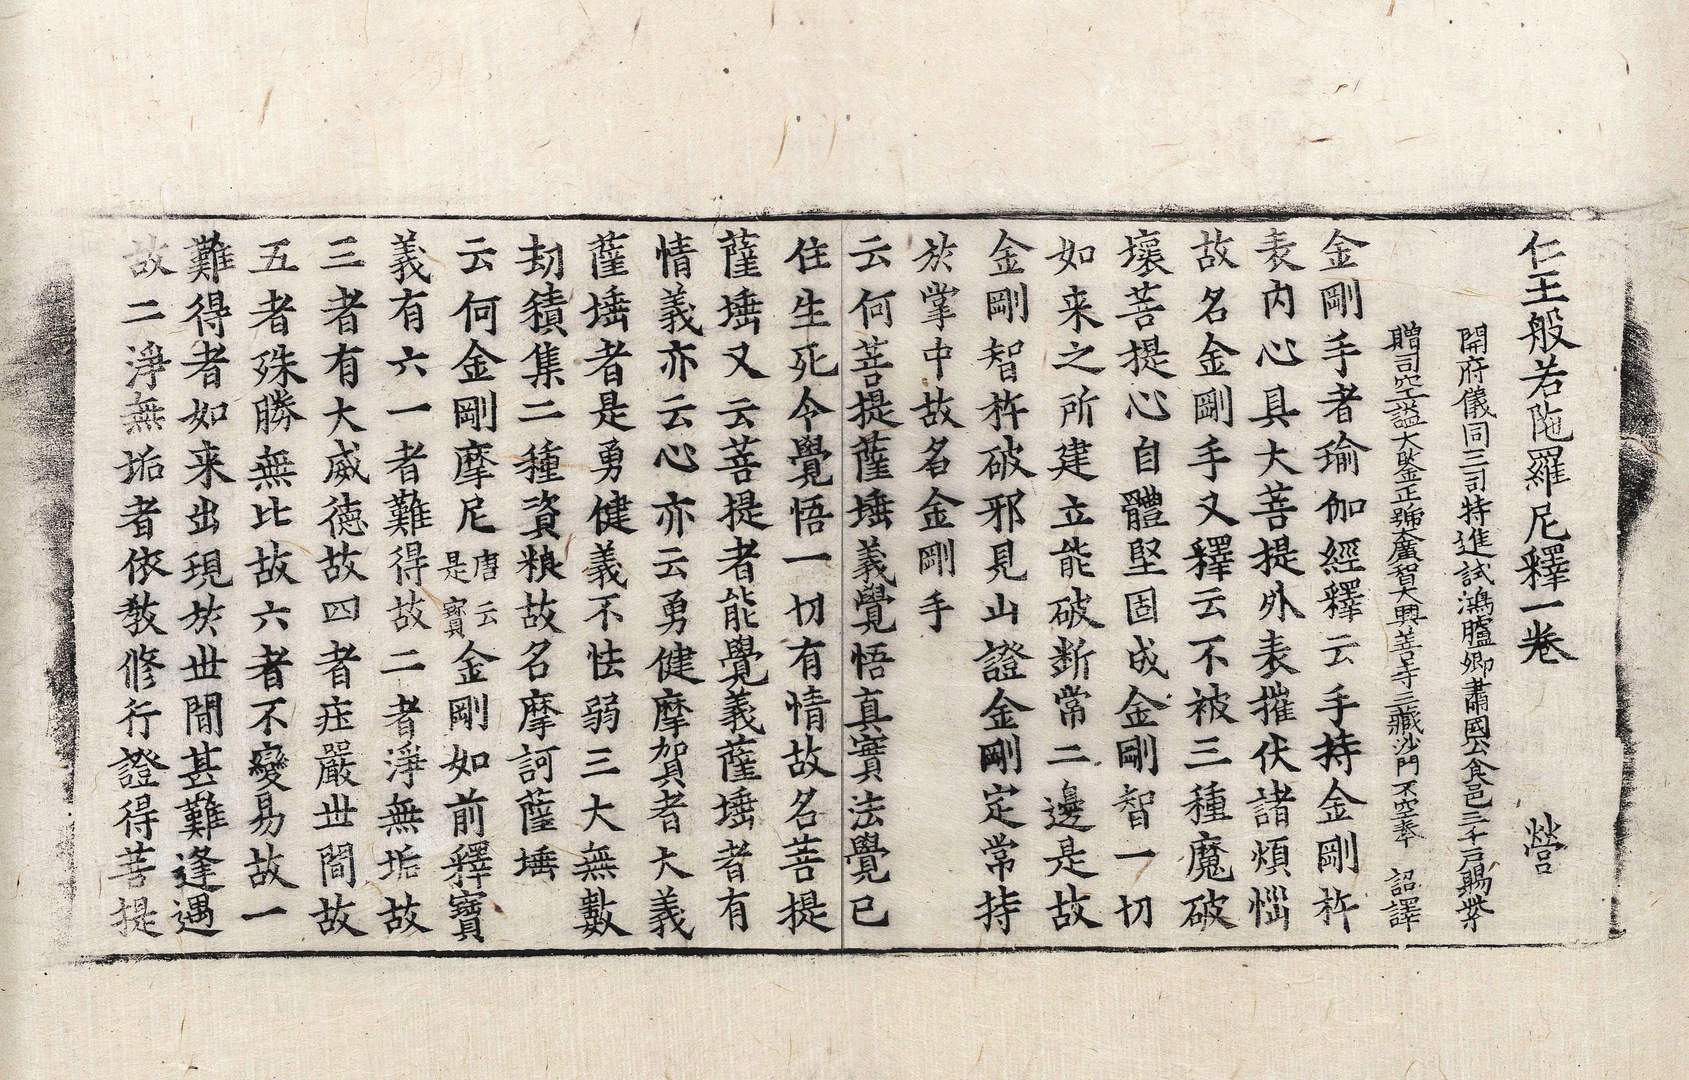 仁王般若陁羅尼釋一卷　營
開府儀同三司特進試鴻臚卿肅國公食邑三千戶賜紫
贈司空謚大鑒正號大廣智大興善寺三藏沙門不空奉　詔譯
金剛手者瑜伽經釋云手持金剛杵
表內心具大菩提外表摧伏諸煩惱
故名金剛手又釋云不被三種魔破
壞菩提心自體堅固成金剛智一切
如来之所建立能破斷常二邊是故
金剛智杵破邪見山證金剛定常持
於掌中故名金剛手
云何菩提薩埵義覺悟真實法覺已
住生死令覺悟一切有情故名菩提
薩埵又云菩提者能覺義薩埵者有
情義亦云心亦云勇健摩賀者大義
薩埵者是勇健義不怯弱三大無數
劫積集二種資粮故名摩訶薩埵
云何金剛摩尼唐云是寶金剛如前釋寶
義有六一者難得故二者淨無垢故
三者有大威德故四者庄嚴世間故
五者殊勝無比故六者不變易故一
難得者如来出現於世間甚難逢遇
故二淨無垢者依教修行證得菩提